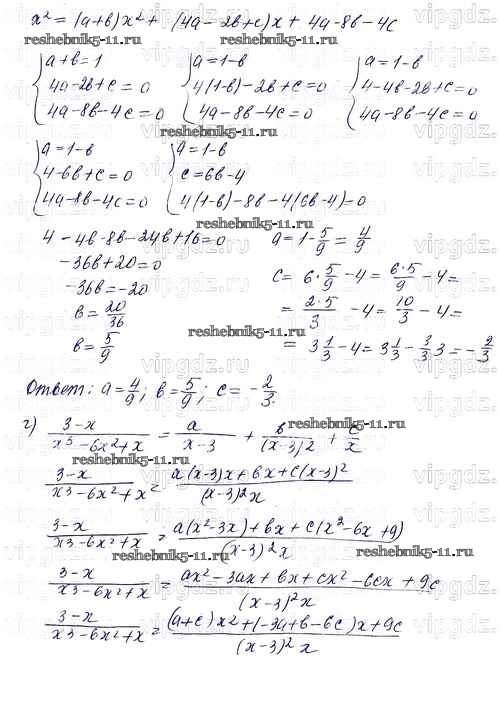 x² = (a+b)x² + (4a-2b+c)x + 4a-8b-4c
reshebnik5-11.ru reshebnik5-11.ru
{ a+b=1 { a=1-b { a=1-b
4a-2b+c=0 4(1-b)-2b+c=0 4-4b-2b+c=0
4a-8b-4c=0 4a-8b-4c=0 4a-8b-4c=0
reshebnik5-11.ru
{ a=1-b { a=1-b
4-6b+c=0 c=6b-4
4a-8b-4c=0 4(1-b)-8b-4(6b-4)=0
reshebnik5-11.ru
4-4b-8b-24b+16=0 a=1-5/9=4/9
-36b+20=0 c=6·5/9-4=6·5/9-4=
-36b=-20 =2·5/3-4=10/3-4=
b=20/36
reshebnik5-11.ru
b=5/9 =3 1/3-4=3 1/3-3 3/3=-2/3
Ответ: a=4/9; b=5/9; c=-2/3.
г) (3-x)/(x³-6x²+x) = a/(x-3) + b/(x-3)2 + c/x
reshebnik5-11.ru
reshebnik5-11.ru
(3-x)/(x³-6x²+x) = (a(x-3)x+bx+c(x-3)²)/((x-3)²x)
(3-x)/(x³-6x²+x) = (a(x²-3x)+bx+c(x²-6x+9))/((x-3)²x)
reshebnik5-11.ru reshebnik5-11.ru
(3-x)/(x³-6x²+x) = (ax²-3ax+bx+cx²-6cx+9c)/((x-3)²x)
reshebnik5-11.ru
(3-x)/(x³-6x²+x) = ((a+c)x²+(-3a+b-6c)x+9c)/((x-3)²x)